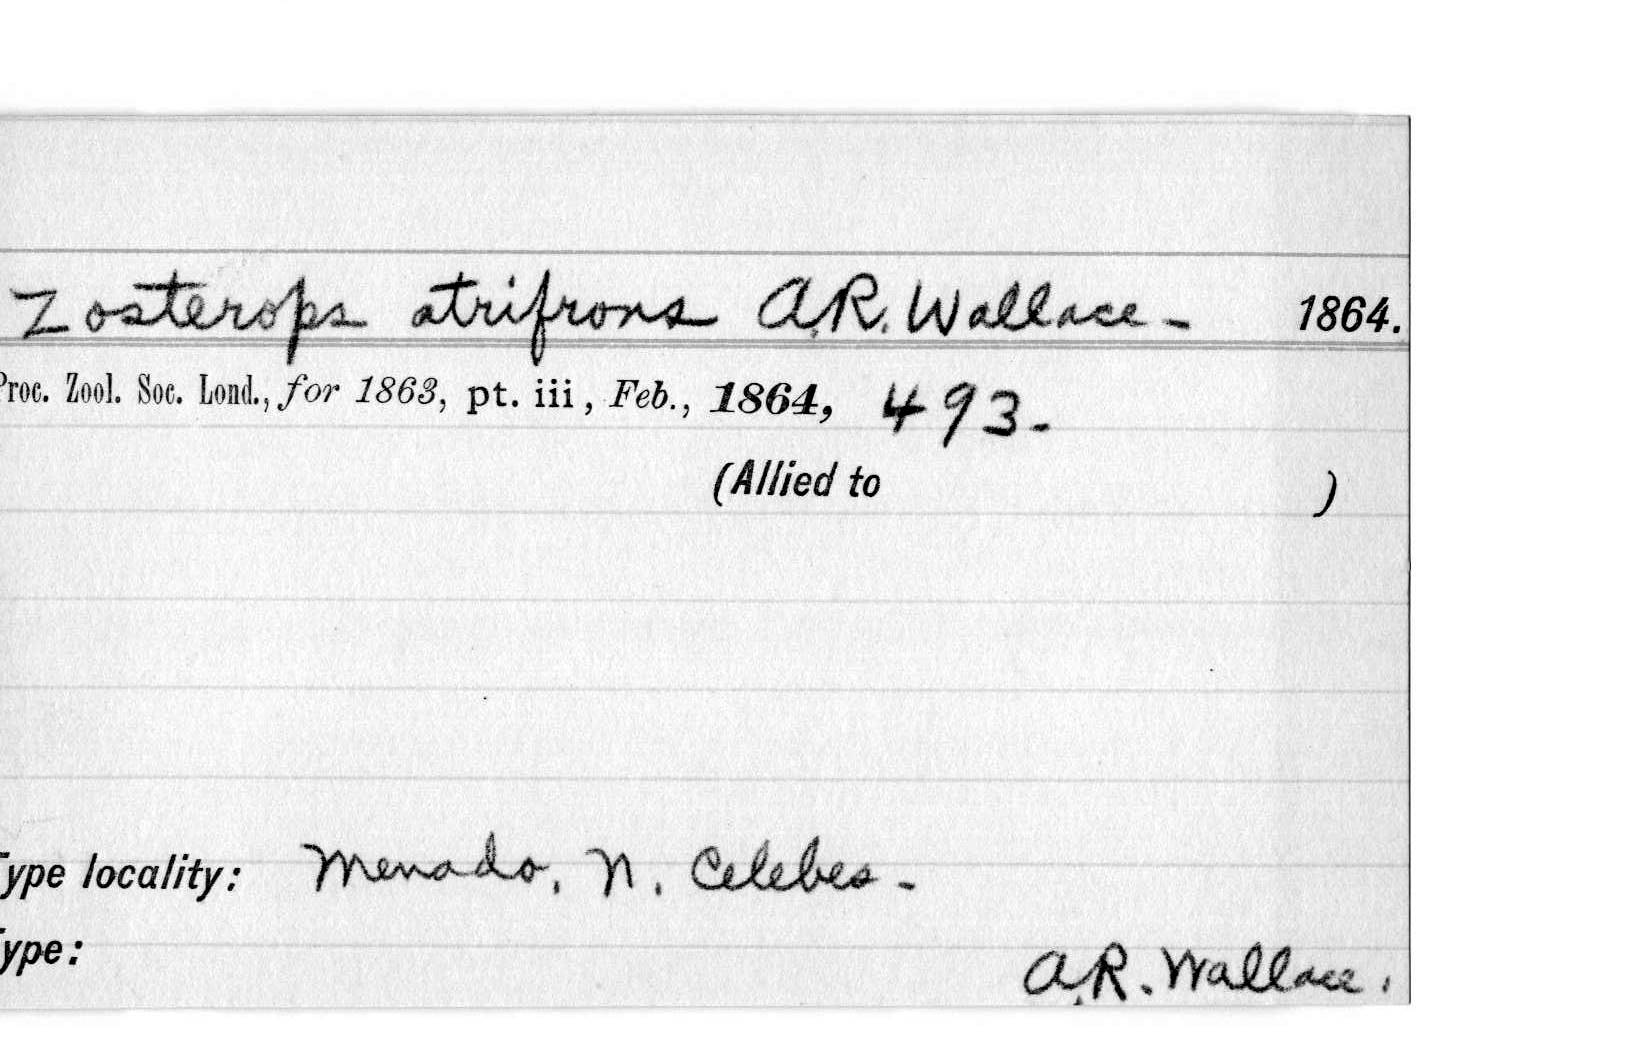 Zosterops atrifrons A.R. Wallace - 1864.
Proc. Zool. Soc. Lond., for 1863, pt. iii, Feb., 1864, 493-
(Allied to )
Type locality: Menado, N. Celebes -
Type:
A.R. Wallace.